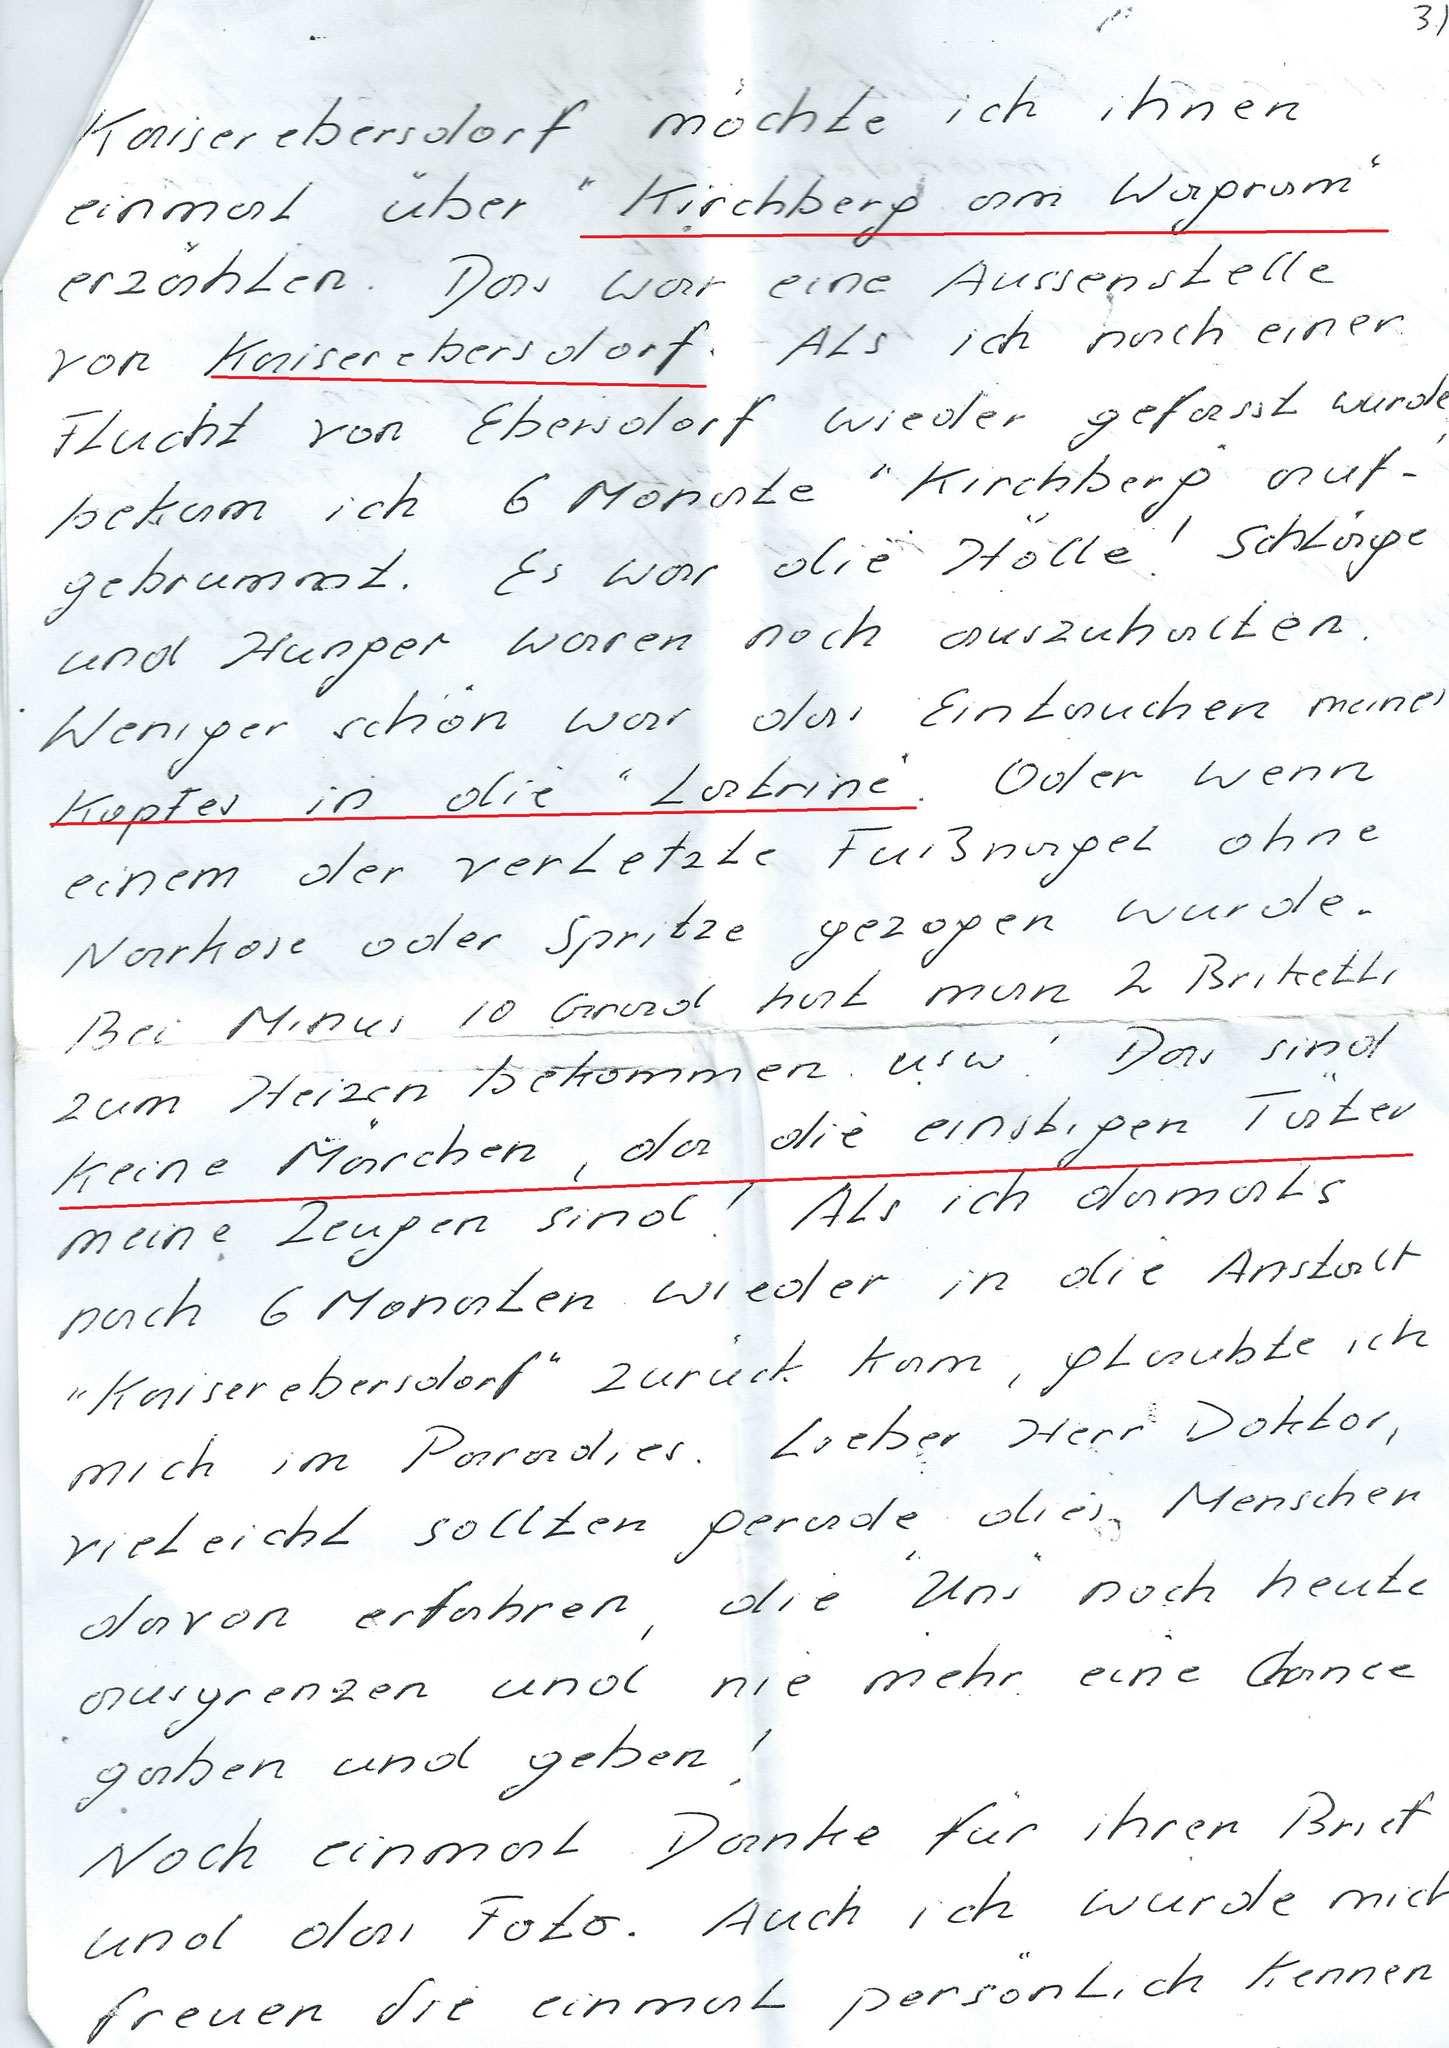 3)
Kaiserebersdorf möchte ich ihnen
einmal über "Kirchberg am Wagram"
erzählen. Das war eine Aussenstelle
von Kaiserebersdorf. Als ich nach einer
Flucht von Ebersdorf wieder gefasst wurde,
bekam ich 6 Monate "Kirchberg auf-
gebrummt. Es war die Hölle! Schläge
und Hunger waren noch auszuhalten.
Weniger schön war das Eintauchen meines
Kopfes in die "Latrine". Oder wenn
einem der verletzte Fußnagel ohne
Narkose oder Spritze gezogen wurde.
Bei Minus 10 Grad hat man 2 Briketts
zum Heizen bekommen usw! Das sind
keine Märchen, da die einstigen Täter
meine Zeugen sind! Als ich damals
nach 6 Monaten wieder in die Anstalt
"Kaiserebersdorf" zurück kam, glaubte ich
mich im Paradies. Lieber Herr Doktor,
vieleicht sollten gerade dies Menschen
davon erfahren, die "Uns" noch heute
ausgrenzen und nie mehr eine Chance
gaben und geben!
Noch einmal Danke für ihren Brief
und das Foto. Auch ich würde mich
freuen Sie einmal persönlich kennen